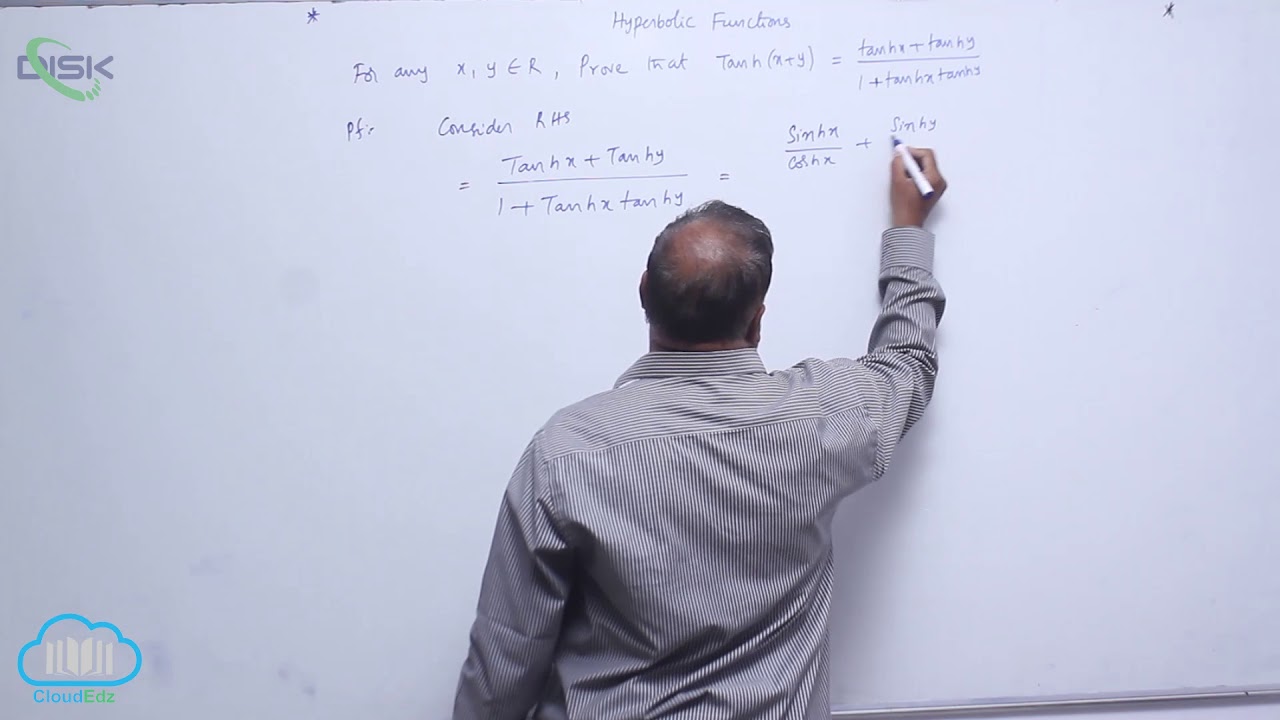 * Hyperbolic Functions *
DISK
For any x, y ∈ R, Prove that Tanh(x+y) = (tanhx + tanhy) / (1 + tanhx tanhy)
Pf:- Consider RHS
= (Tanhx + Tanhy) / (1 + Tanhx tanhy) = Sinhx / coshx + Sinhy
CloudEdz